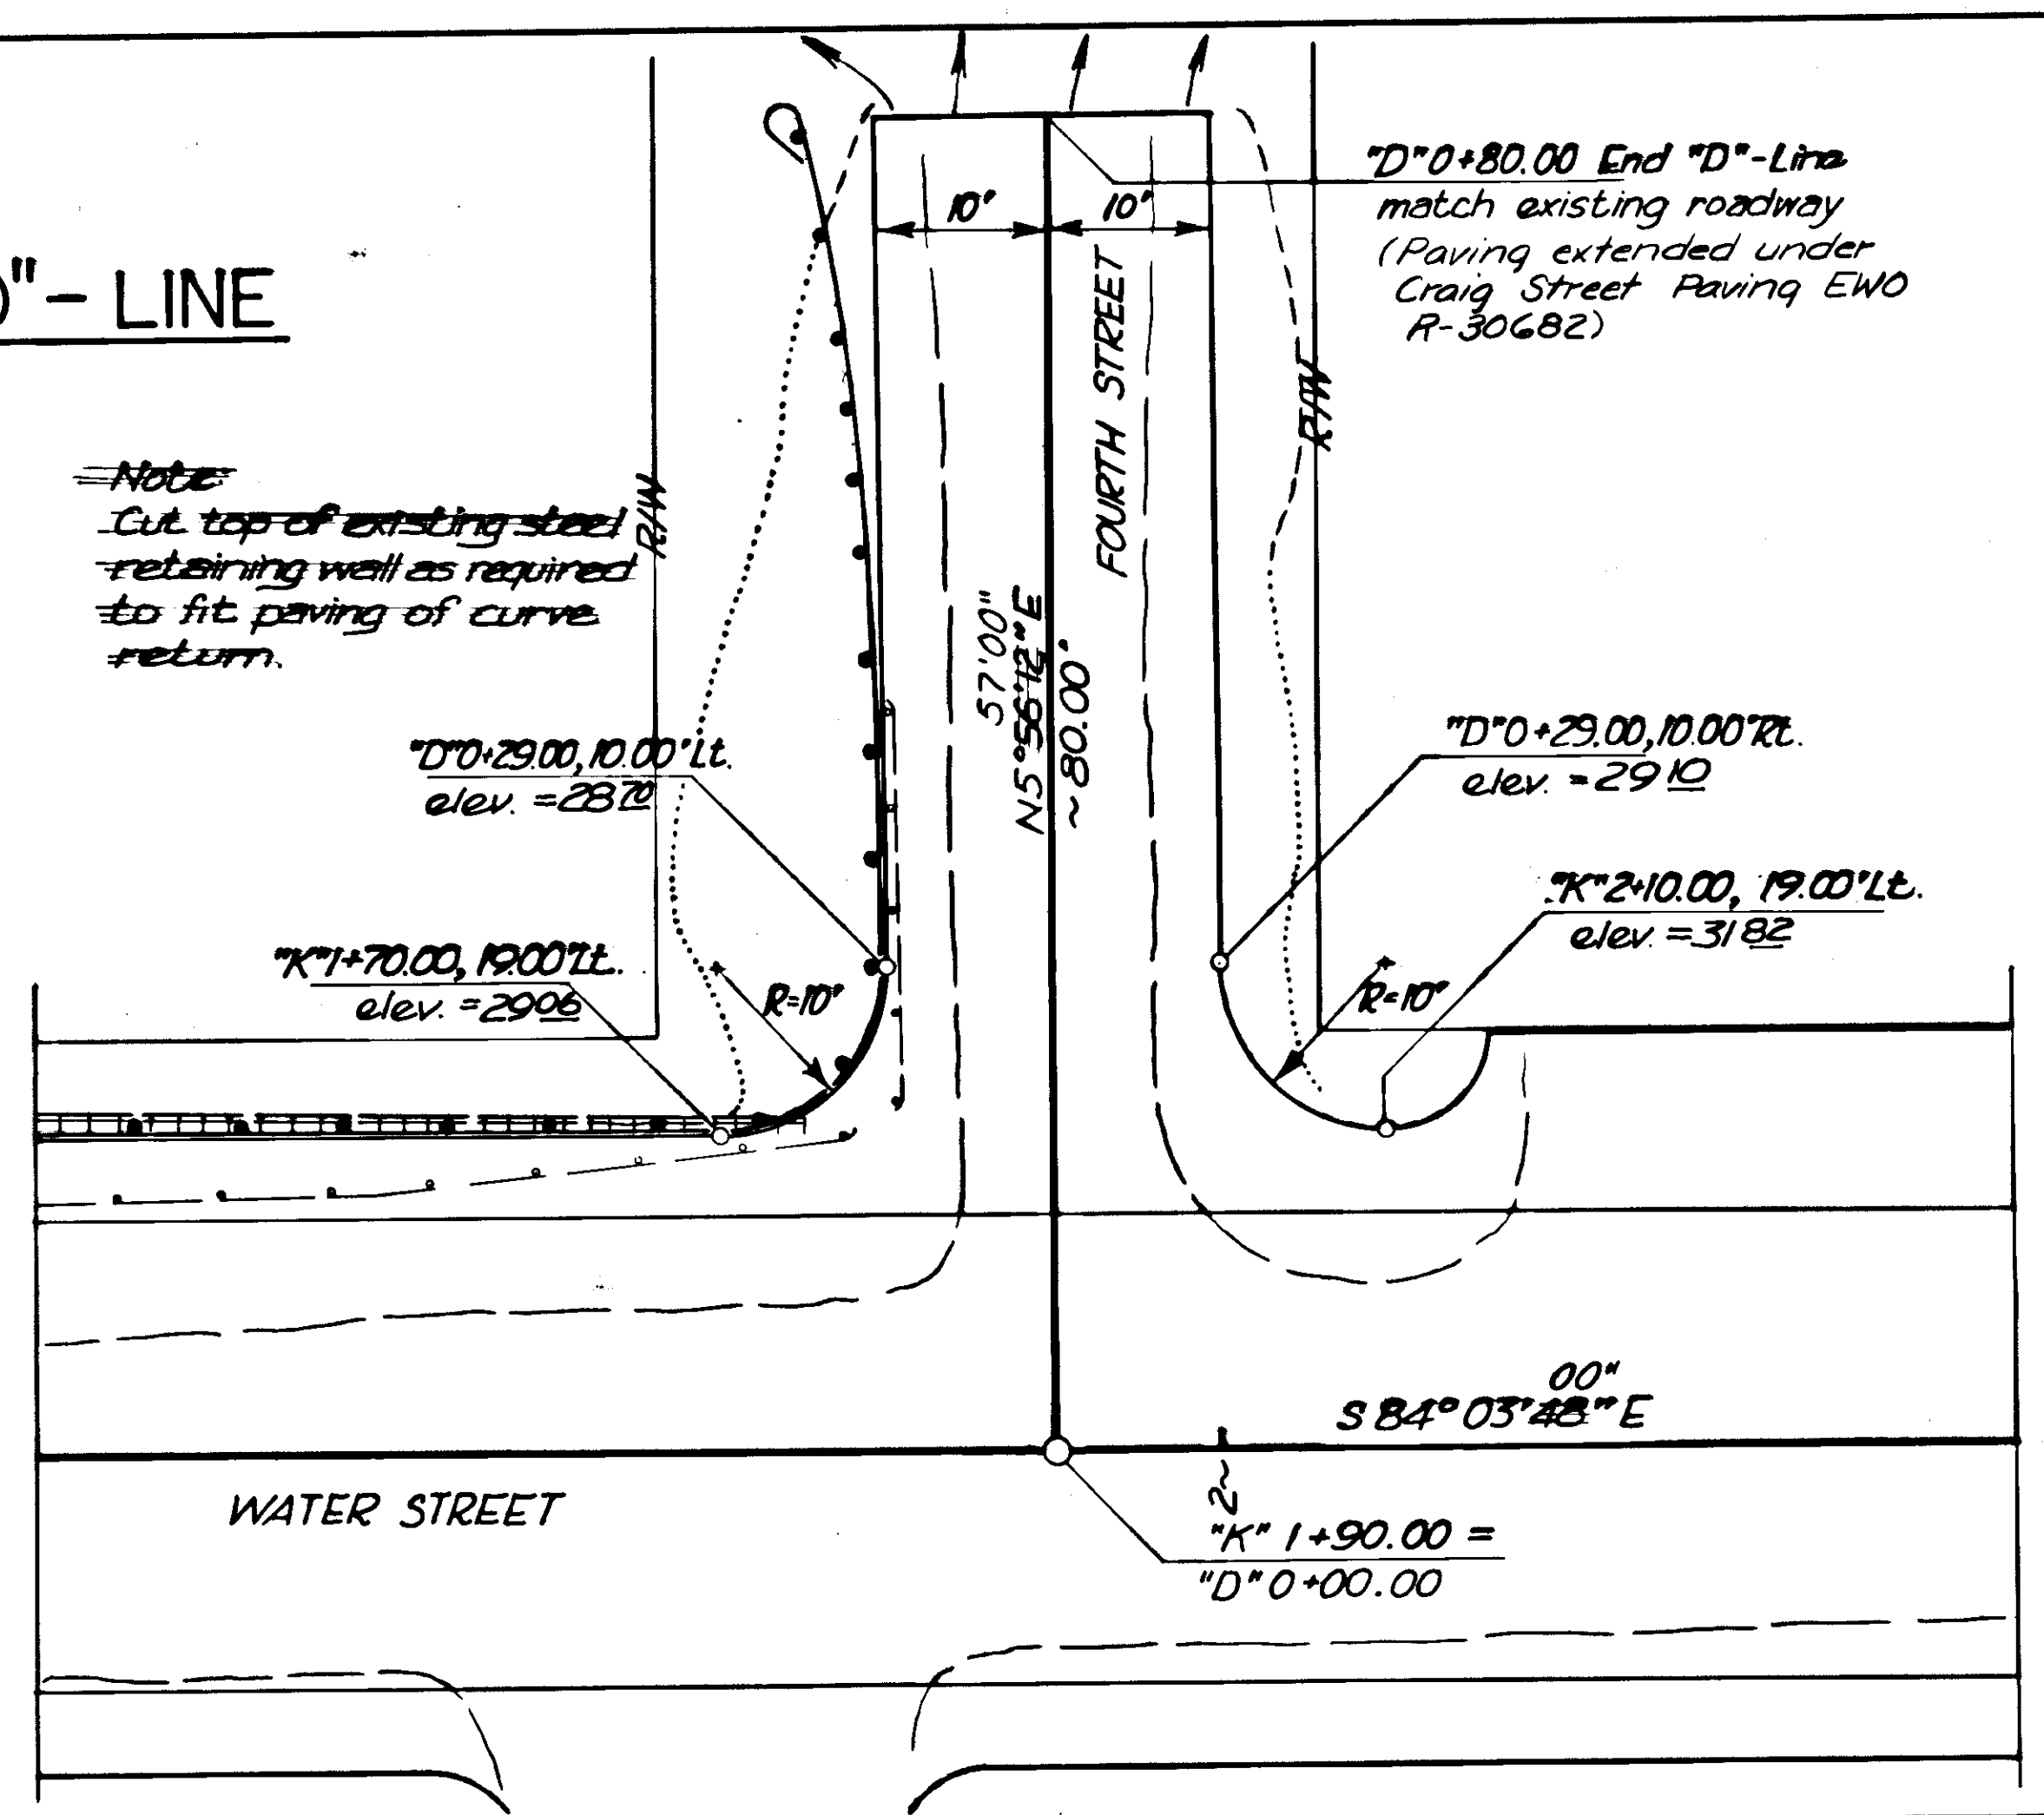 "- LINE
10'
10'
"D" 0+80.00 End "D"-Line
match existing roadway
(Paving extended under
Craig Street Paving EWO
R-30682)
FOURTH STREET
R/W
R/W
Note:
Cut top of existing steel
retaining wall as required
to fit paving of curve
return.
57'00"
N5°56'12"E
~80.00'
"D" 0+29.00, 10.00' Lt.
elev. = 2870
"D" 0+29.00, 10.00' Rt.
elev. = 2910
"K" 1+70.00, 19.00' Lt.
elev. = 2906
"K" 2+10.00, 19.00' Lt.
elev. = 3182
R=10'
R=10'
00"
S 84° 03' 48" E
WATER STREET
2~
"K" 1+90.00 =
"D" 0+00.00